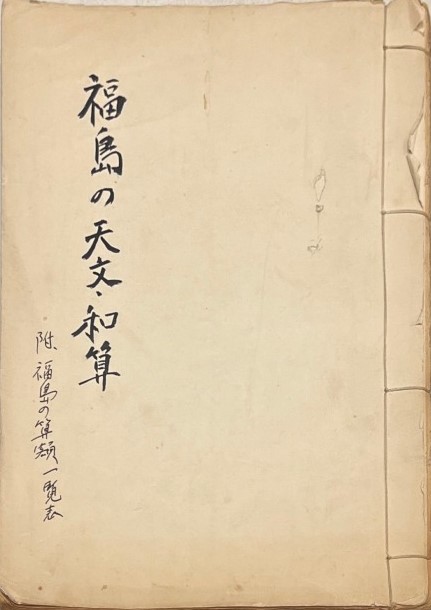 福島の天文、和算
附、福島の算額一覧表